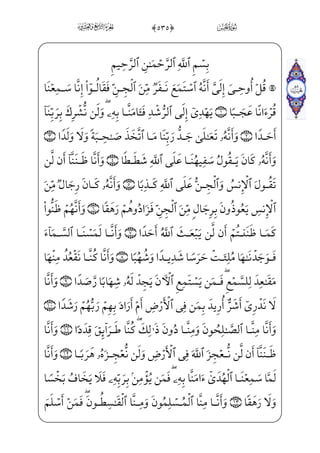 سورة الجن ﴿٥٣٥﴾ الجزء التاسع والعشرون
بِسْمِ ٱللَّهِ ٱلرَّحْمَٰنِ ٱلرَّحِيمِ
۞ قُلْ أُوحِىَ إِلَىَّ أَنَّهُ ٱسْتَمَعَ نَفَرٌ مِّنَ ٱلْجِنِّ فَقَالُوٓا۟ إِنَّا سَمِعْنَا
قُرْءَانًا عَجَبًا ۝١ يَهْدِىٓ إِلَى ٱلرُّشْدِ فَـَٔامَنَّا بِهِۦ ۖ وَلَن نُّشْرِكَ بِرَبِّنَآ
أَحَدًا ۝٢ وَأَنَّهُۥ تَعَٰلَىٰ جَدُّ رَبِّنَا مَا ٱتَّخَذَ صَٰحِبَةً وَلَا وَلَدًا ۝٣
وَأَنَّهُۥ كَانَ يَقُولُ سَفِيهُنَا عَلَى ٱللَّهِ شَطَطًا ۝٤ وَأَنَّا ظَنَنَّآ أَن لَّن
تَقُولَ ٱلْإِنسُ وَٱلْجِنُّ عَلَى ٱللَّهِ كَذِبًا ۝٥ وَأَنَّهُۥ كَانَ رِجَالٌ مِّنَ
ٱلْإِنسِ يَعُوذُونَ بِرِجَالٍ مِّنَ ٱلْجِنِّ فَزَادُوهُمْ رَهَقًا ۝٦ وَأَنَّهُمْ ظَنُّوا۟
كَمَا ظَنَنتُمْ أَن لَّن يَبْعَثَ ٱللَّهُ أَحَدًا ۝٧ وَأَنَّا لَمَسْنَا ٱلسَّمَآءَ
فَوَجَدْنَٰهَا مُلِئَتْ حَرَسًا شَدِيدًا وَشُهُبًا ۝٨ وَأَنَّا كُنَّا نَقْعُدُ مِنْهَا
مَقَٰعِدَ لِلسَّمْعِ ۖ فَمَن يَسْتَمِعِ ٱلْـَٔانَ يَجِدْ لَهُۥ شِهَابًا رَّصَدًا ۝٩ وَأَنَّا
لَا نَدْرِىٓ أَشَرٌّ أُرِيدَ بِمَن فِى ٱلْأَرْضِ أَمْ أَرَادَ بِهِمْ رَبُّهُمْ رَشَدًا ۝١٠
وَأَنَّا مِنَّا ٱلصَّٰلِحُونَ وَمِنَّا دُونَ ذَٰلِكَ ۖ كُنَّا طَرَآئِقَ قِدَدًا ۝١١ وَأَنَّا
ظَنَنَّآ أَن لَّن نُّعْجِزَ ٱللَّهَ فِى ٱلْأَرْضِ وَلَن نُّعْجِزَهُۥ هَرَبًا ۝١٢ وَأَنَّا
لَمَّا سَمِعْنَا ٱلْهُدَىٰٓ ءَامَنَّا بِهِۦ ۖ فَمَن يُؤْمِنۢ بِرَبِّهِۦ فَلَا يَخَافُ بَخْسًا
وَلَا رَهَقًا ۝١٣ وَأَنَّا مِنَّا ٱلْمُسْلِمُونَ وَمِنَّا ٱلْقَٰسِطُونَ ۖ فَمَنْ أَسْلَمَ